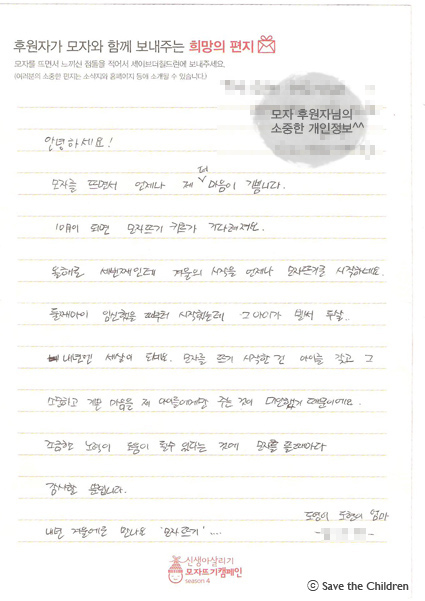 후원자가 모자와 함께 보내주는 희망의 편지
모자를 뜨면서 느끼신 점들을 적어서 세이브더칠드런에 보내주세요.
(여러분의 소중한 편지는 소식지와 홈페이지 등에 소개될 수 있습니다.)
모자 후원자님의
소중한 개인정보^^
안녕하세요!
모자를 뜨면서 언제나 제 더 마음이 기쁩니다.
10월이 되면 모자뜨기 키트가 기다려져요.
올해로 세번째인데 겨울의 시작을 언제나 모자뜨기로 시작하네요.
둘째아이 임신했을 때부터 시작했는데 그 아이가 벌써 두살..
내년엔 세살이 되네요. 모자를 뜨기 시작한 건 아이를 갖고 그
소중하고 기쁜 마음을 제 아이들에게만 주는 것이 미안했기 때문이에요.
조금한 노력이 도움이 될수 있다는 것에 모자를 뜰때마다
감사할 뿐입니다.
내년 겨울에도 만나요 '모자뜨기'....
도영이 도현이 엄마
신생아살리기
모자뜨기캠페인
season 4
ⓒ Save the Children